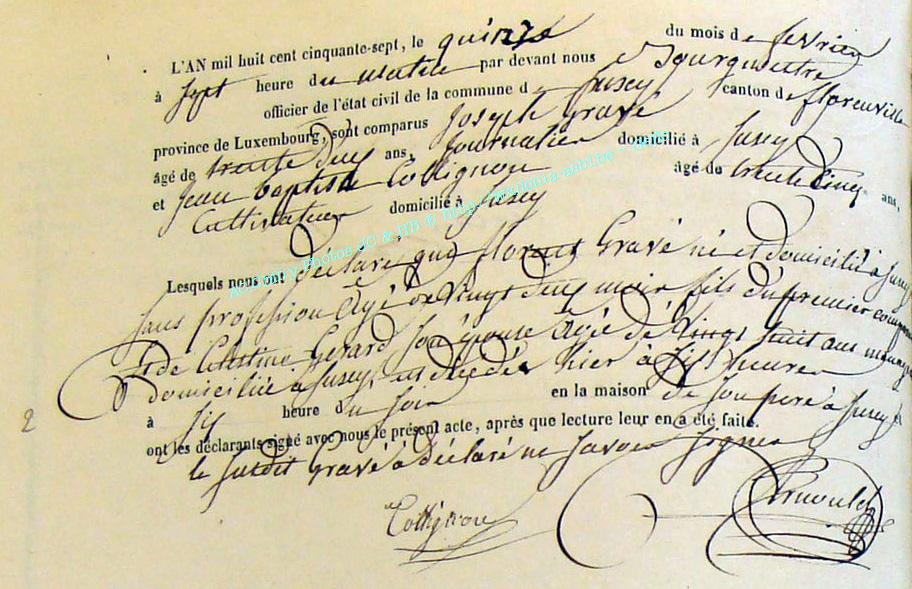 L'AN mil huit cent cinquante-sept, le quinze du mois de février
à sept heure du matin par devant nous Bourgmestre
officier de l'état civil de la commune d Jusey canton de florenville
province de Luxembourg, sont comparus Joseph Gravé
âgé de trente deux ans, Journalier domicilié à Jusey
et Jean Baptiste Collignon âgé de trente cinq ans,
Cultivateur domicilié à Jusey
Lesquels nous ont déclaré que florent Gravé né et domicilié à Jusey
sans profession âgé de vingt deux mois fils du premier comparant
et de Célestine Gerard son épouse âgée de vingt huit ans ménagère
domiciliée à Jusey, est décédé hier à six heures
à six heure du soir en la maison de son père à Jusey et
ont les déclarants signé avec nous le présent acte, après que lecture leur en a été faite.
le susdit Gravé a déclaré ne savoir signer
Collignon
2